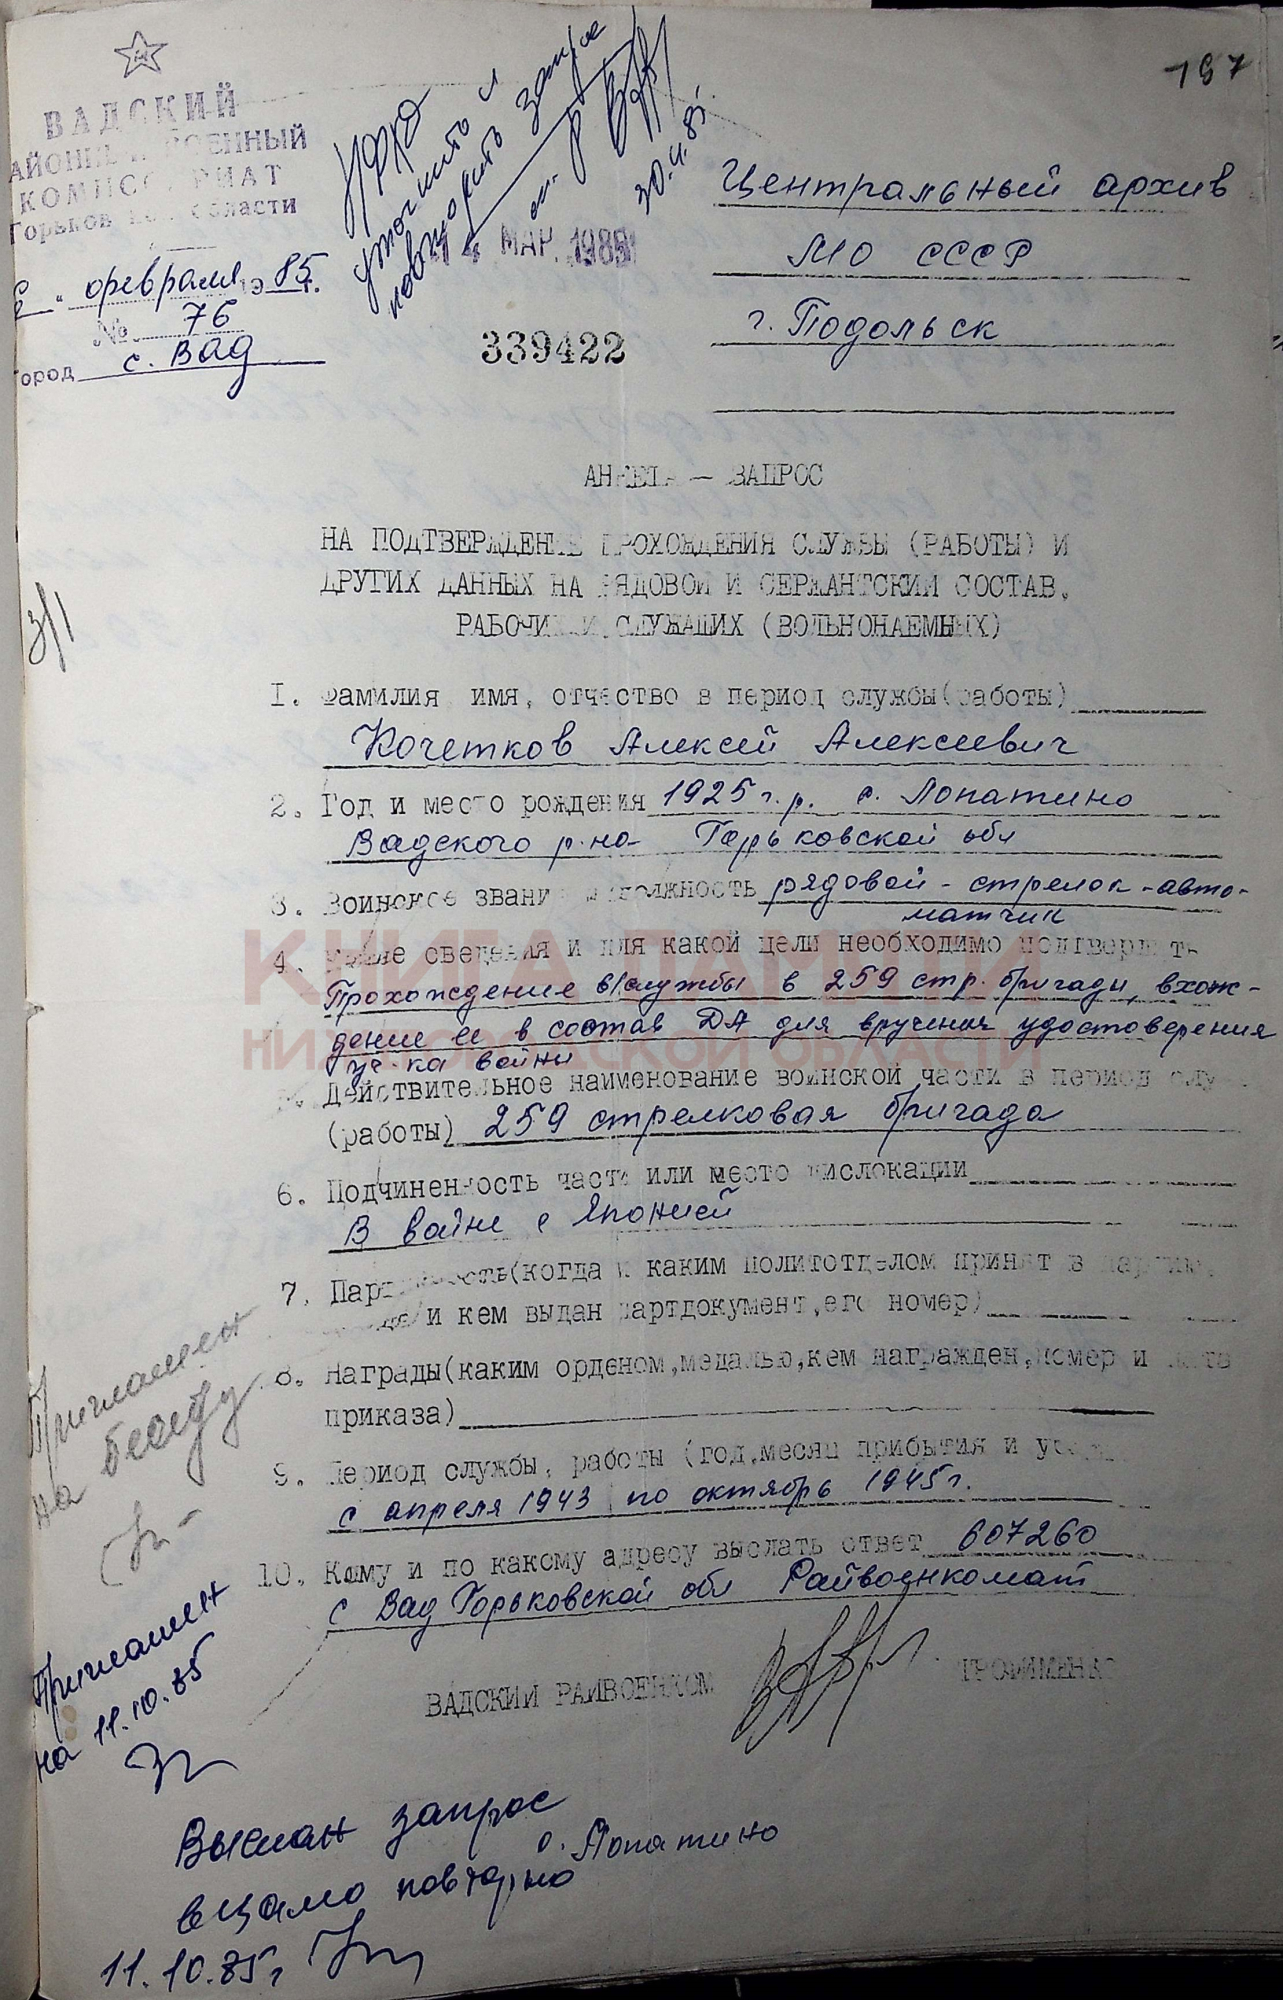 197
ВАДСКИЙ
РАЙОННЫЙ ВОЕННЫЙ
КОМИССАРИАТ
Горьковской области
" февраля 1985 г.
№ 76
город с. Вад
уточнить и
повторить запрос
30.4.85г.
14 МАР. 1985
339422
Центральный архив
МО СССР
г. Подольск
АНКЕТА — ЗАПРОС
НА ПОДТВЕРЖДЕНИЕ ПРОХОЖДЕНИЯ СЛУЖБЫ (РАБОТЫ) И
ДРУГИХ ДАННЫХ НА РЯДОВОЙ И СЕРЖАНТСКИЙ СОСТАВ,
РАБОЧИХ И СЛУЖАЩИХ (ВОЛЬНОНАЕМНЫХ)
3/1
1. Фамилия, имя, отчество в период службы(работы)
Кочетков Алексей Алексеевич
2. Год и место рождения 1925 г.р. с. Лопатино
Вадского р-на Горьковской обл
3. Воинское звание и должность рядовой - стрелок - авто-
матчик
4. Какие сведения и для какой цели необходимо подтвердить
Прохождение в/службы в 259 стр. бригады, вхож-
дение ее в состав ДА для вручения удостоверения
уч-ка войны
5. Действительное наименование воинской части в период слу
(работы) 259 стрелковая бригада
6. Подчиненность части или место дислокации
В войне с Японией
7. Партийность(когда и каким политотделом принят в партию,
где и кем выдан партдокумент, его номер)
8. Награды(каким орденом, медалью, кем награжден, номер и дата
приказа)
9. Период службы, работы (год, месяц прибытия и
с апреля 1943 по октябрь 1945 г.
10. Кому и по какому адресу выслать ответ 607260
с Вад Горьковской обл Райвоенкомат
ВАДСКИЙ РАЙВОЕНКОМ
Приглашен
на беседу
Приглашен
на 11.10.85
Выслан запрос
с. Лопатино
в ЦАМО повторно
11.10.85г
КНИГА ПАМЯТИ
НИЖЕГОРОДСКОЙ ОБЛАСТИ